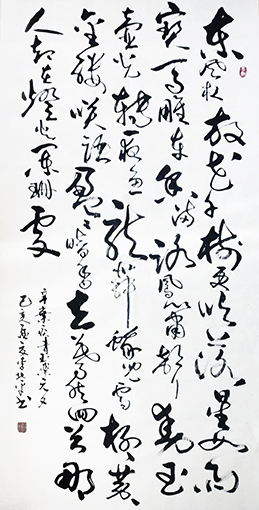 东风夜放花千树更吹落星如雨
宝马雕车香满路凤箫声动玉
壶光转一夜鱼龙舞蛾儿雪柳黄
金缕笑语盈盈暗香去蓦然回首那
人却在灯火阑珊处
辛弃疾青玉案元夕
己亥夏李书